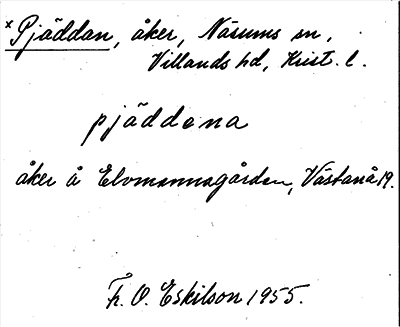 x Pjäddan, åker, Näsums sn,
Villands hd, Krist. l.
pjäddena
åker å Elvmannagården, Västanå 19.
Fr. O. Eskilson 1955.